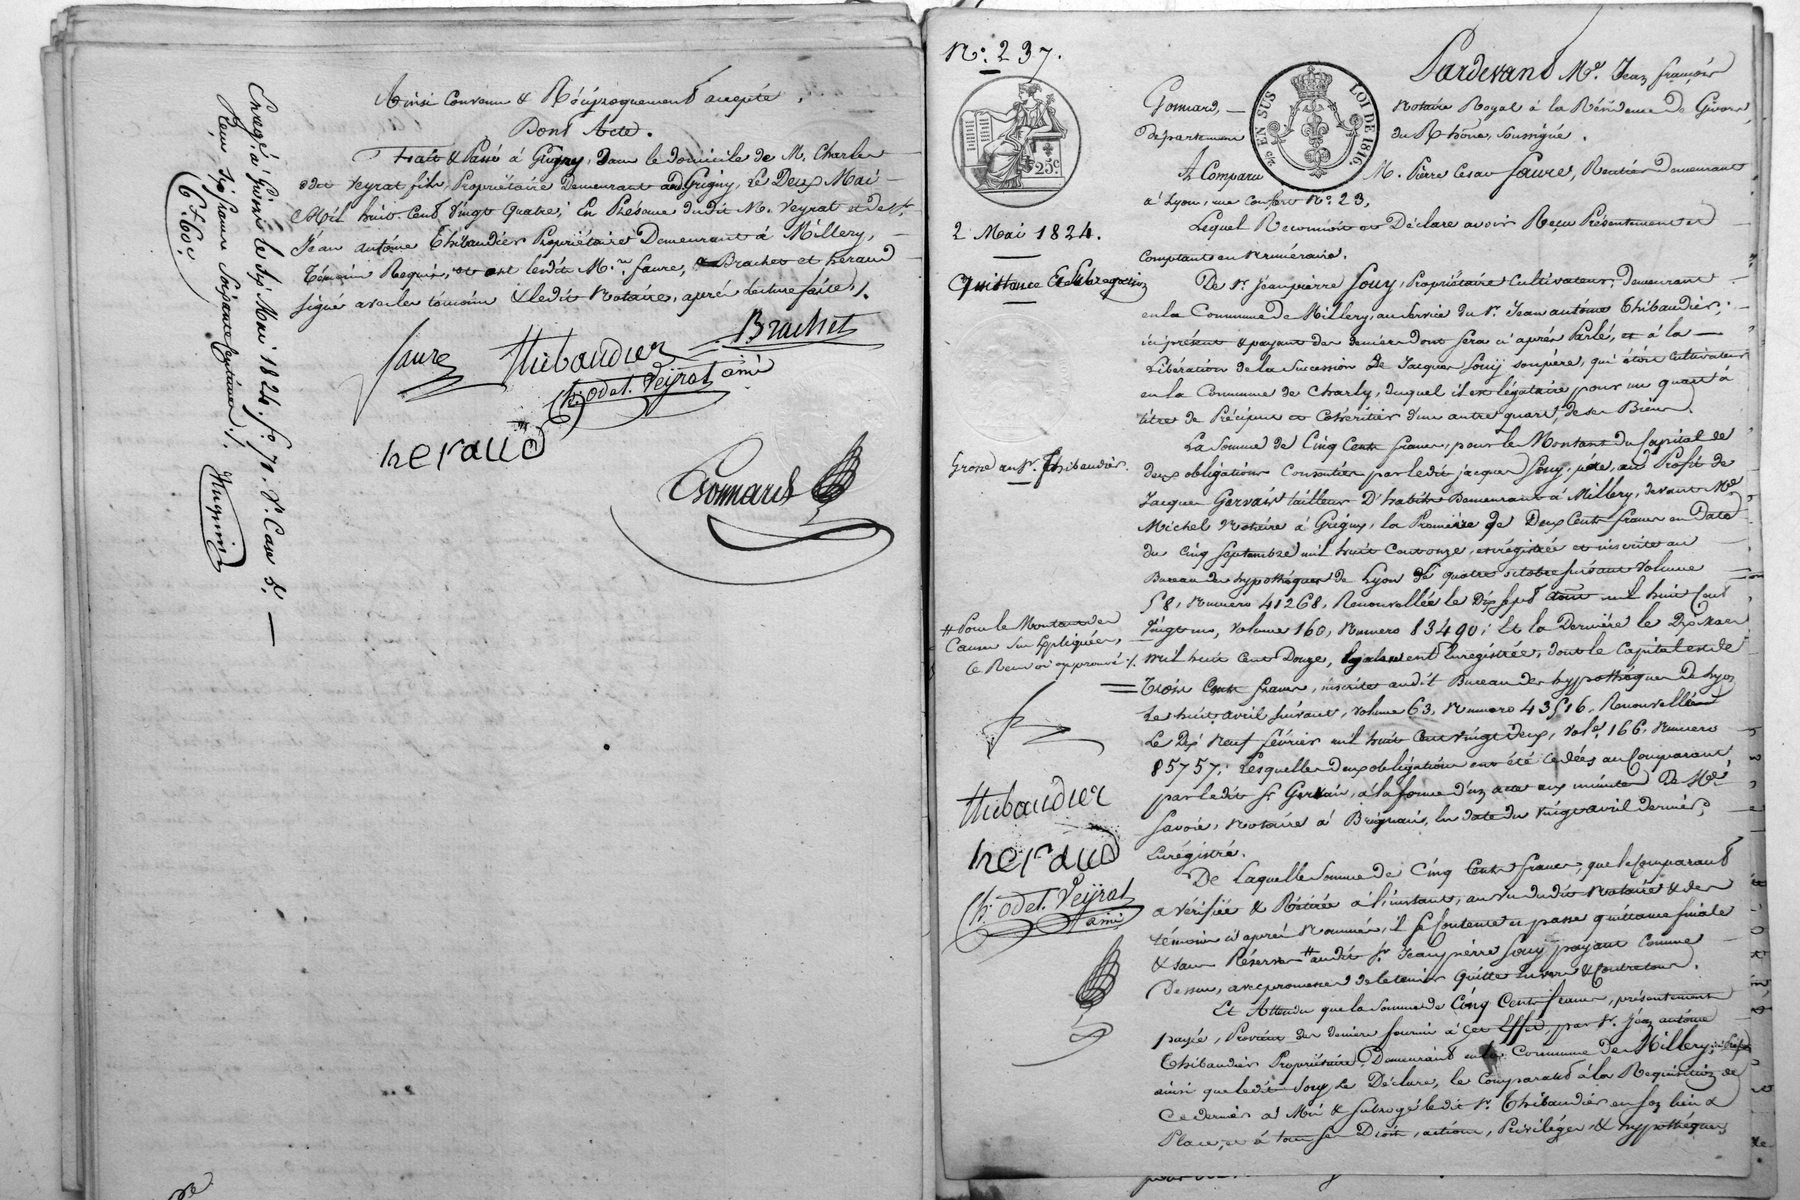 Ainsi Convenu & Réciproquement accepté.
Dont Acte.
Fait & Passé à Grigny, dans le domicile de M. Charles
odet Veyrat fils, Propriétaire Demeurant au d. Grigny, Le Deux Mai
Mil huit Cent Vingt Quatre; En Présence dudit M. Veyrat et de Sr.
Jean antoine Thibaudier Propriétaire Demeurant à Millery,
Témoins Requis, et ont lesdits M.rs faure, Brachet et héraud
signé avec les témoins & ledit Notaire, après lecture faite./.
faure Thibaudier Brachet
Ch. Odet. Veyrat ami
heraud
Gonnard
Enregé. à Givors le six Mai 1824. fo. 71. Vo. Case 5.
Reçu six francs soixante centimes ./.
6f. 60c.
Hugnin
No. 237.
25c.
2 Mai 1824.
Quittance Et subrogation
Grosse au Sr. Thibaudier.
# Pour le Montant des
Causes sus Expliquées,
Ce Renvoi approuvé ./.
Thibaudier
heraud
Ch. Odet. Veyrat
ami
EN SUS LOI DE 1816.
Pardevant Me. Jean françois
Gonnard, Notaire Royal à la Résidence de Givors,
département du Rhône, soussigné.
A Comparu M. Pierre César faure, Rentier demeurant
à Lyon, rue Confort No. 23,
Lequel Reconnoit et Déclare avoir Reçu Présentement et
comptant en Numéraire.
De Sr. Jean pierre Souy, Propriétaire Cultivateur, demeurant
en la Commune de Millery, au service du Sr. Jean antoine Thibaudier,
ici présent & payant des deniers dont sera ci après Parlé, et à la
Libération de la Succession de Jacques Souy son père, qui étoit cultivateur
en la Commune de Charly, duquel il est légataire pour un quart à
titre de Préciput et Cohéritier d'un autre quart de ses Biens.
La Somme de Cinq Cents francs, pour le Montant du Capital de
deux obligations Consenties par ledit jacques Souy, père, au Profit de
Jacques Gervais tailleur D'habits Demeurant à Millery, devant Me.
Michel Notaire à Grigny, la Première de Deux Cents francs en Date
du Cinq Septembre mil huit Cent onze, enrégistrée et inscrite au
Bureau des hypothèques de Lyon le quatre octobre suivant Volume
58, Numéro 41268, Renouvellée le Dix sept août mil huit Cent
Vingt un, Volume 160, Numéro 83490; Et la Dernière le Dix Mars
mil huit Cent Douze, également Enregistrée, dont le Capital est de
Trois Cents francs, inscrite audit Bureau des hypothèques de Lyon
Le huit avril suivant, Volume 63, Numéro 43516, Renouvellée
Le Dix Neuf février mil huit Cent vingt deux, Vole. 166, Numéro
85757; Lesquelles deux obligations ont été Cedées au Comparant
par ledit Sr. Gervais, à la forme d'un acte aux minutes De Me.
Savoie, Notaire à Brignais, En date du Vingt avril dernier,
Enrégistré.
De Laquelle Somme de Cinq Cents francs, que le Comparant
a vérifiée & Retirée à l'instant, au vu dudit Notaire & des
témoins ci après Nommés, il se Contente et passe quittance finale
& sans Réserve # audit Sr. Jean pierre Souy payant Comme
Dessus, avec promesse de le tenir Quitte Envers & Contre tous.
Et Attendu que la Somme de Cinq Cents francs, présentement
payée, Provient des deniers fournis à Cet Effet, par Sr. Jean antoine
Thibaudier Propriétaire, Demeurant en la Commune de Millery,
ainsi que ledit Souy Le Déclare, le Comparant à la Requisition de
Ce dernier a Mis & subrogé ledit Sr. Thibaudier en son lieu &
Place, et à tous ses Droits, actions, Privilèges & hypothèques